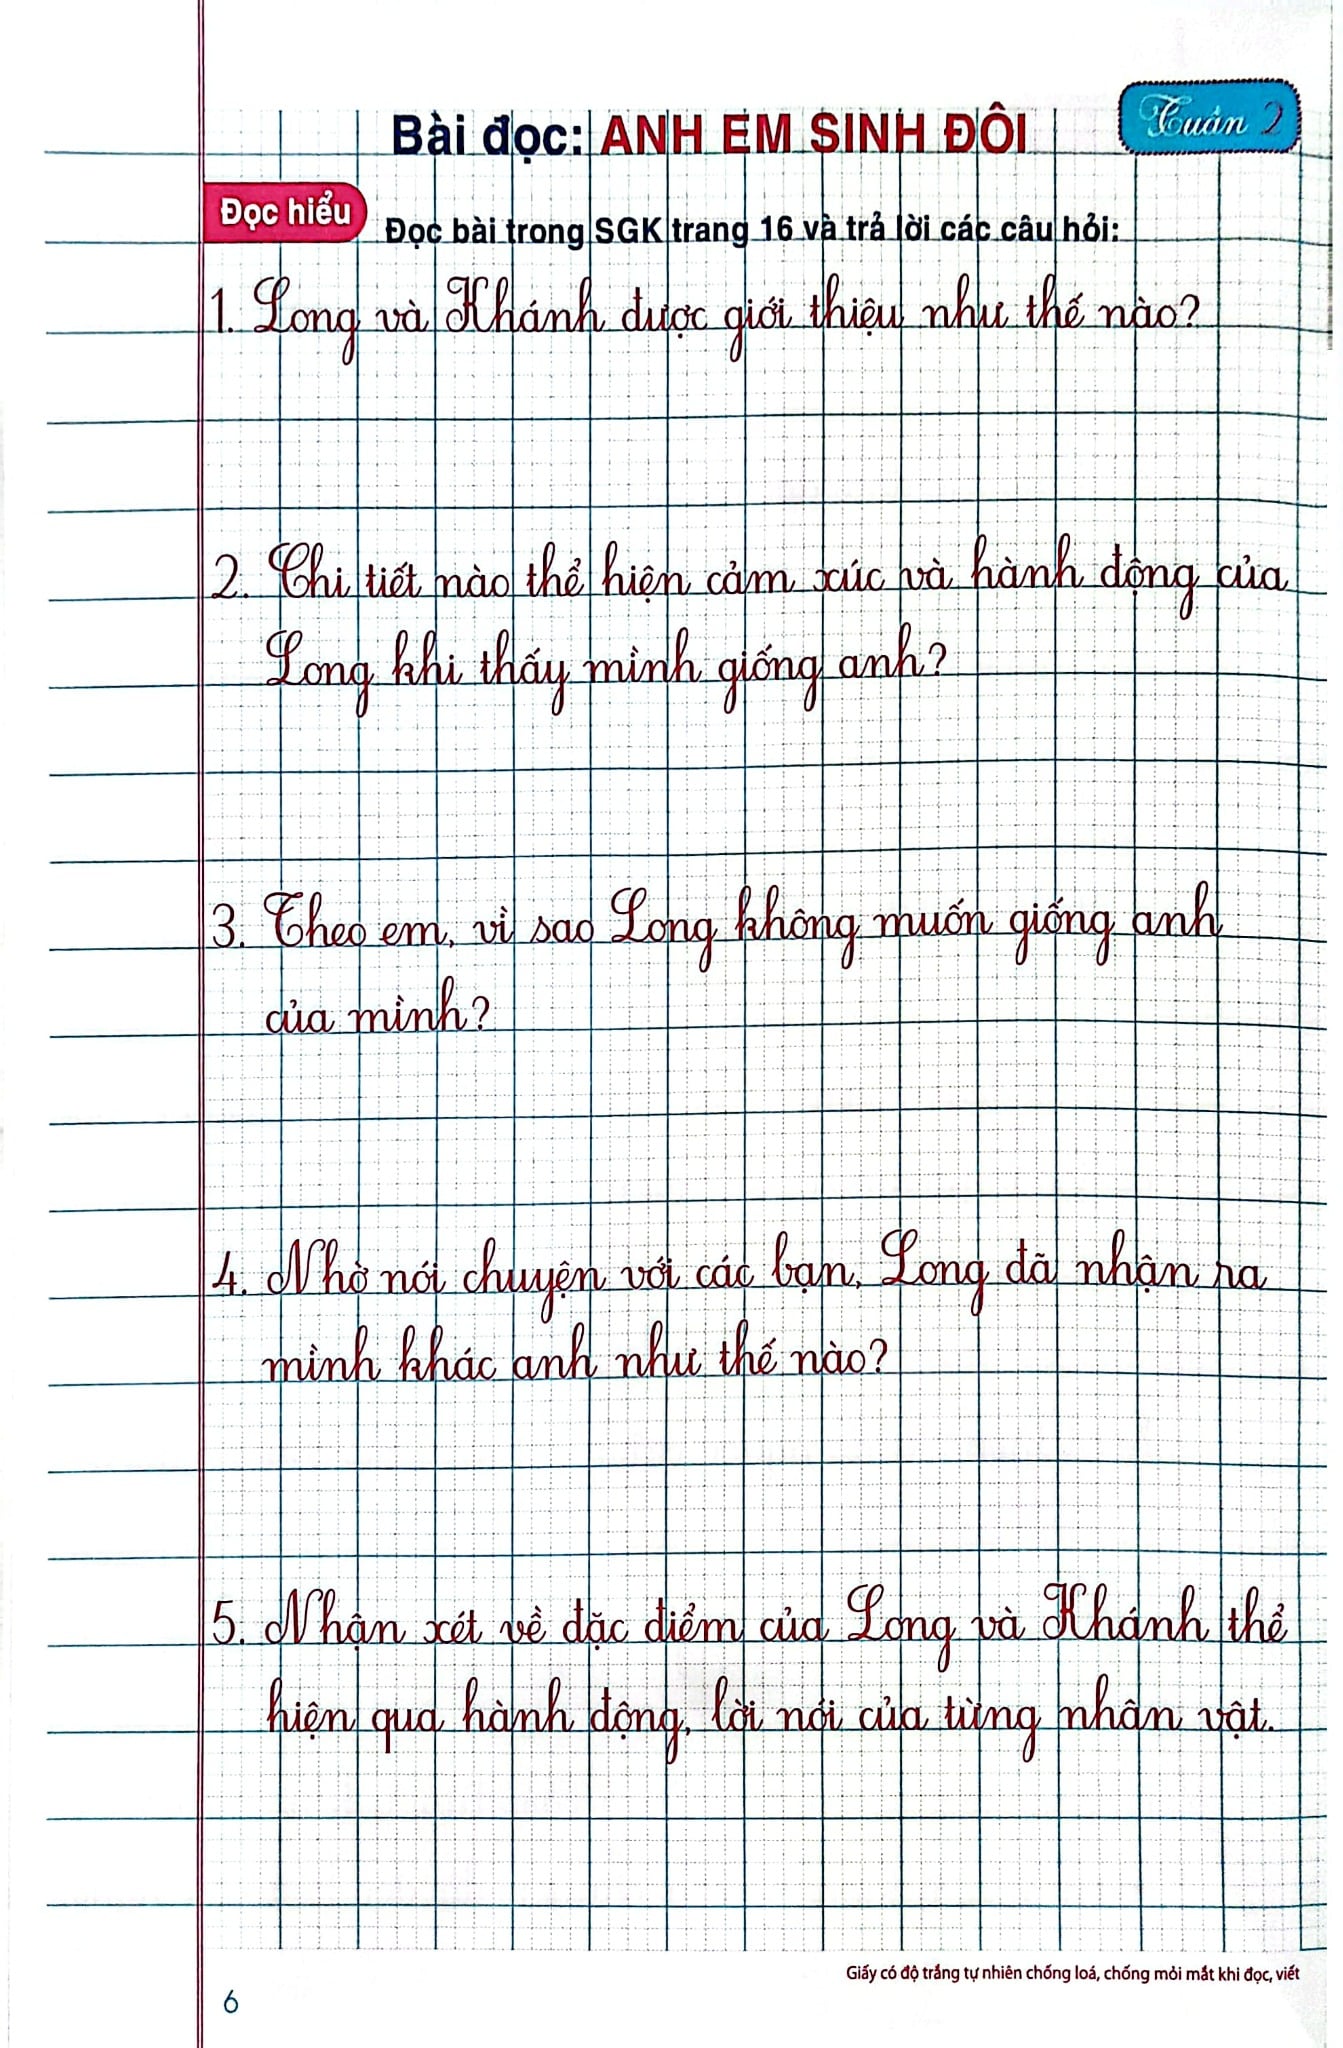 Tuần 2
Bài đọc: ANH EM SINH ĐÔI
Đọc hiểu
Đọc bài trong SGK trang 16 và trả lời các câu hỏi:
1. Long và Khánh được giới thiệu như thế nào?
2. Chi tiết nào thể hiện cảm xúc và hành động của
Long khi thấy mình giống anh?
3. Theo em, vì sao Long không muốn giống anh
của mình?
4. Nhờ nói chuyện với các bạn, Long đã nhận ra
mình khác anh như thế nào?
5. Nhận xét về đặc điểm của Long và Khánh thể
hiện qua hành động, lời nói của từng nhân vật.
Giấy có độ trắng tự nhiên chống loá, chống mỏi mắt khi đọc, viết
6